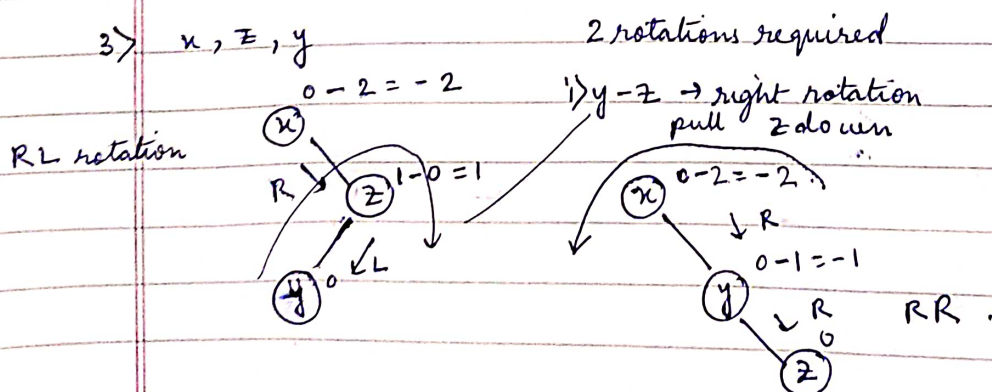 3> x, z, y
2 rotations required
0 - 2 = -2
1> y - z → right rotation
pull z down
x
RL rotation
R
1 - 0 = 1
z
L
y 0
x 0 - 2 = -2
R
0 - 1 = -1
y
R
RR.
0
z